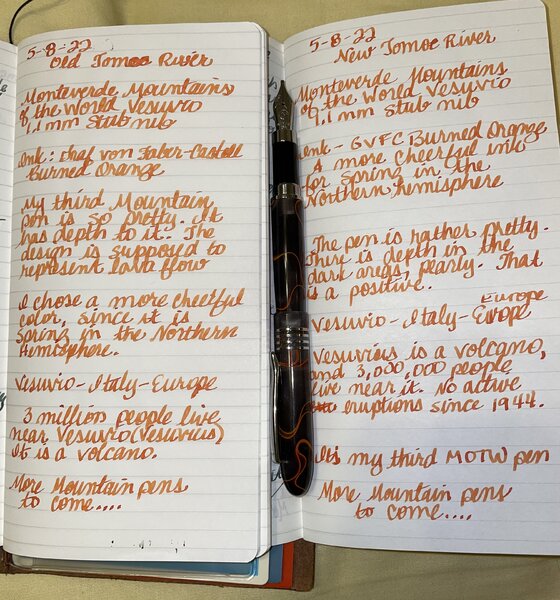 5-8-22
Old Tomoe River
Monteverde Mountains
of the World Vesuvio
1.1 mm Stub nib
Ink: Graf von Faber-Castell
Burned Orange
My third Mountain
pen is so pretty. It
has depth to it. The
design is supposed to
represent lava flow
I chose a more cheerful
color, since it is
Spring in the Northern
Hemisphere.
Vesuvio-Italy-Europe
3 million people live
near Vesuvio (Vesuvius)
It is a volcano.
More Mountain pens
to come....
5-8-22
New Tomoe River
Monteverde Mountains
of the World Vesuvio
1.1 mm Stub nib
Ink - GVFC Burned Orange
A more cheerful ink
for spring in the
Northern Hemisphere
The pen is rather pretty.
There is depth in the
dark areas, pearly. That
is a positive.
Europe
Vesuvio-Italy-Europe
Vesuvius is a volcano,
and 3,000,000 people
live near it. No active
eruptions since 1944.
It's my third MOTW pen
More Mountain pens
to come....